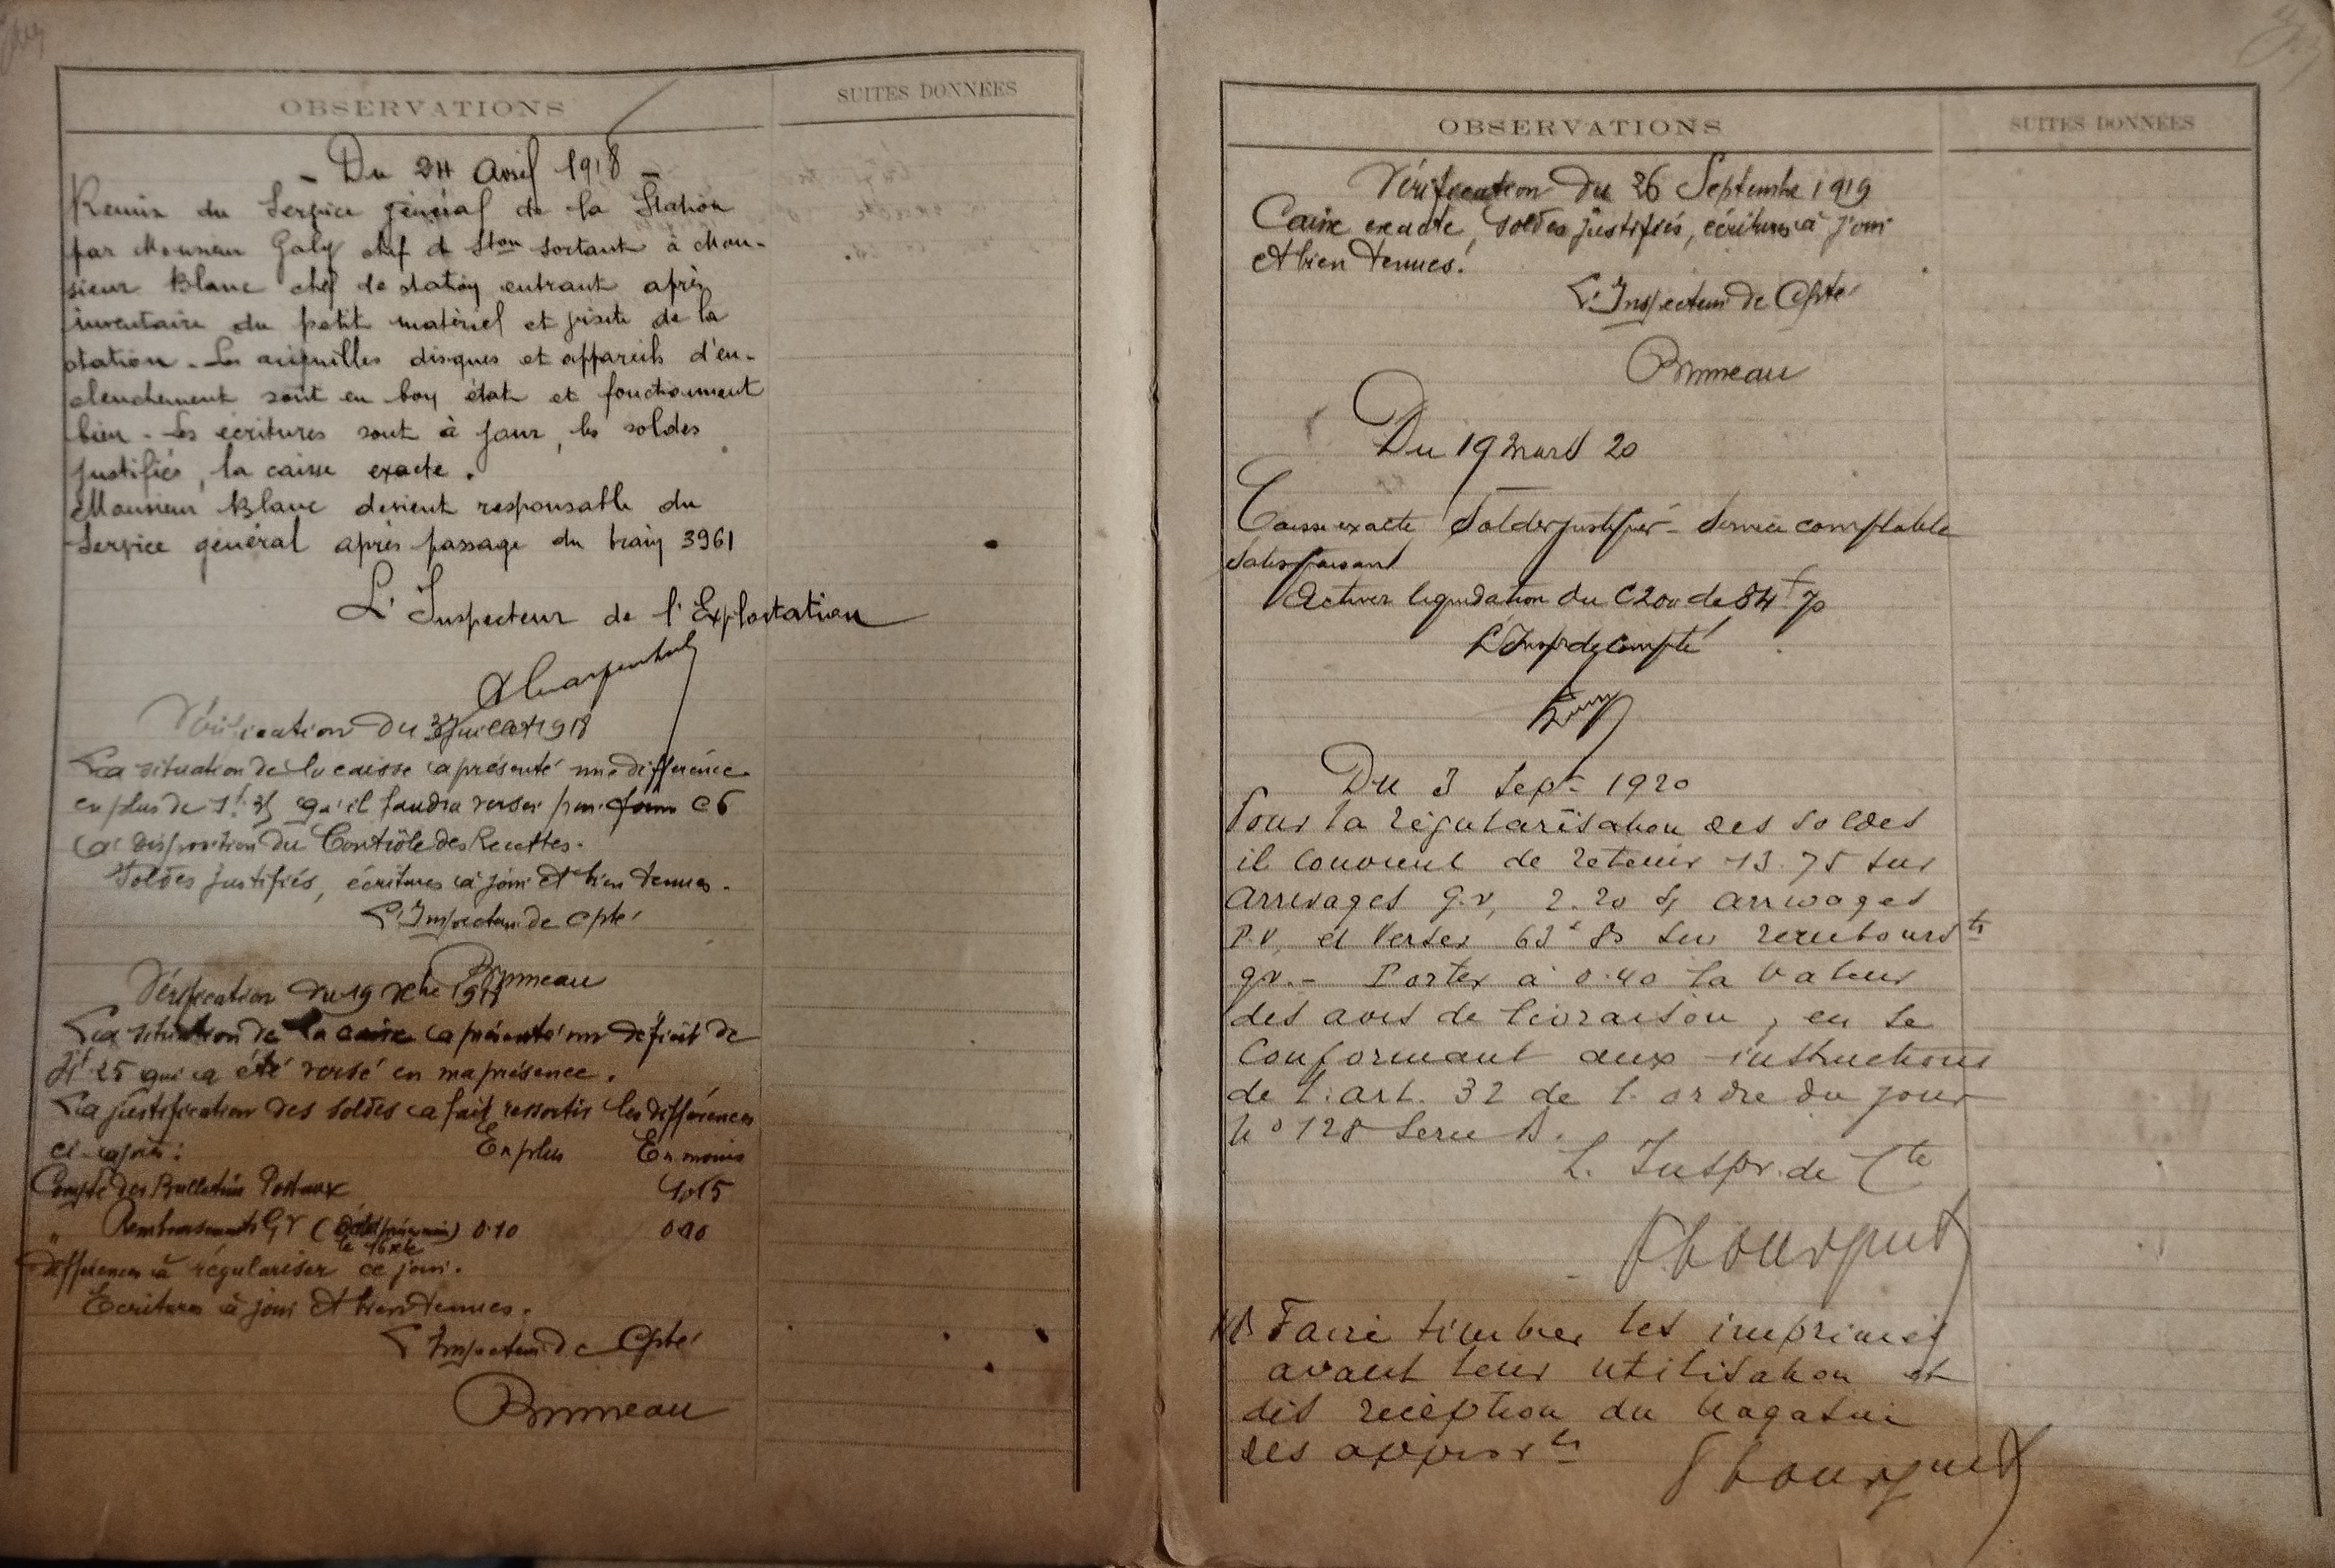 OBSERVATIONS
SUITES DONNÉES
- Du 24 Avril 1918 -
Remise du Service général de la Station
par Monsieur Galy chef de Ston sortant à Mon-
sieur Blanc chef de station entrant après
inventaire du petit matériel et visite de la
station - Les aiguilles disques et appareils d'en-
clenchement sont en bon état et fonctionnent
bien - Les écritures sont à jour, les soldes
justifiés, la caisse exacte.
Monsieur Blanc devient responsable du
Service général après passage du train 3961
L'Inspecteur de l'Exploitation
Vérification du Juillet 1918
La situation de la caisse a présenté une différence
en plus de qu'il faudra verser par C6
à disposition du Contrôle des Recettes.
Soldes justifiés, écritures à jour et bien tenues.
L'Inspecteur de Cpté
Brunneau
Vérification du 19 Xbre
La situation de la caisse a présenté un déficit de
25 qui a été versé en ma présence.
La justification des soldes a fait ressortir les différences
ci-après : En plus En moins
Compte des Bulletins Postaux
" Remboursements GV 0.10
différences à régulariser ce jour.
Ecritures à jour et bien tenues.
L'Inspecteur de Cpté
Brunneau
OBSERVATIONS
SUITES DONNÉES
Vérification du 26 Septembre 1919
Caisse exacte, soldes justifiés, écritures à jour
et bien tenues.
L'Inspecteur de Cpté
Brunneau
Du 19 Mars 20
Caisse exacte Soldes justifiés - Service comptable
satisfaisant
Activer liquidation du C200 de 84f 70
L'Inspr de compté
Du 3 Sept 1920
Pour la régularisation des soldes
il convient de retenir 13.75 sur
arrivages G.V, 2.20 s/ arrivages
P.V, et verser 63f 80 sur rembours ts
gv. - Porter à 0.40 la valeur
des avis de livraison, en se
conformant aux instructions
de l'art. 32 de l'ordre du jour
No 128 Serie B.
L'Inspr. de Cté
NB Faire timbrer les imprimés
avant leur utilisation et
dès réception du Magasin
des approv ts